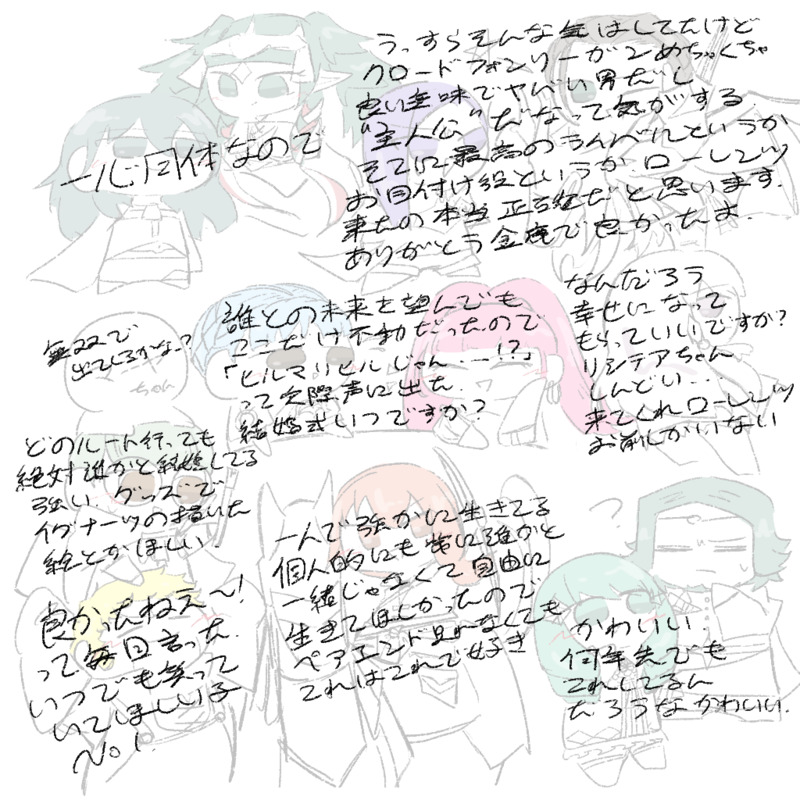 一心同体なので
うっすらそんな気はしてたけど
クロードフォンリーガンめちゃくちゃ
良い意味でヤバい男だし
"主人公"だなって気がする
そこに最高のライバルというか
お目付け役というか、ローレンツ
来たの本当正解だと思います
ありがとう金鹿で良かったよ
無双で
出てくるかな?
ちゃん
誰との未来を望んでも
ここだけ不動だったので
「ヒルマリヒルじゃん――!?」
って実際声に出た
結婚式いつですか?
なんだろう
幸せになって
もらっていいですか?
リシテアちゃん
しんどい...
来てくれローレンツ
お前しかいない
どのルート行っても
絶対誰かと結婚してる
強い グッズで
イグナーツの描いた
絵とかほしい
良かったねえ〜!
って毎回言った
いつでも笑って
いてほしい子
No1.
一人で強かに生きてる
個人的にも特に誰かと
一緒じゃなくて自由に
生きてほしかったので
ペアエンド見れなくても
これはこれで好き
?
かわいい
何年先でも
これしてるん
だろうなかわいい